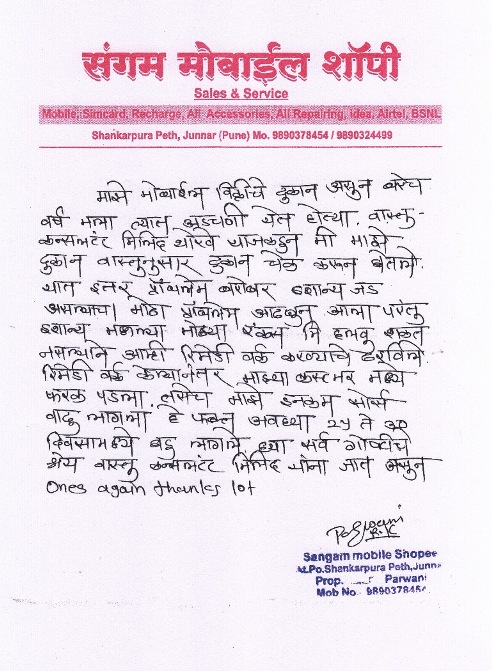 संगम मोबाईल शॉपी
Sales & Service
Mobile, Simcard, Recharge, All Accessories, All Repairing, Idea, Airtel, BSNL
Shankarpura Peth, Junnar (Pune) Mo. 9890378454 / 9890324499
माझे मोबाईल विक्रीचे दुकान असून बरेच
वर्ष मला त्यात अडचणी येत होत्या. वास्तु-
कन्सलटंट मिलिंद थोरवे यांजकडून मी माझे
दुकान वास्तुनुसार दुकान चेक करून घेतले.
यात इतर प्रॉब्लेम बरोबर इशान्य जड
असल्याचा मोठा प्रॉब्लेम आढळून आला परंतु
इशान्य मधल्या मोठ्या रॅकस मि हलवु शकत
नसल्याने आम्ही रेमिडी वर्क करण्याचे ठरविले.
रेमिडी वर्क केल्यानंतर माझ्या कस्टमर मध्ये
फरक पडला. तसेच माझे इनकम सोर्स
वाढु लागला हे फक्त अवघ्या २५ ते ३०
दिवसामध्ये वाढु लागले ह्या सर्व गोष्टीचे
श्रेय वास्तु कन्सलटंट मिलिंद यांना जात असुन
Ones again thanks lot
Sangam mobile Shopee
At.Po.Shankarpura Peth,Junnar
Prop. Parwani
Mob No. 9890378454